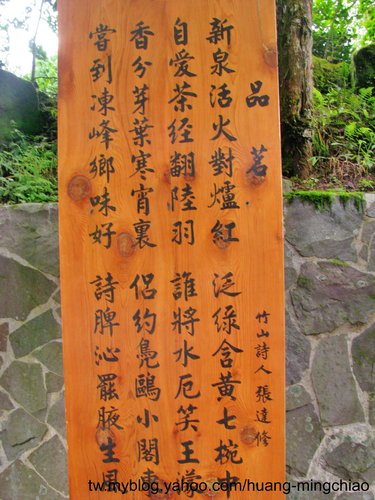 品茗
竹山詩人 張達修
新泉活火對爐紅 泛綠含黃七椀
自愛茶經翻陸羽 誰將水厄笑王
香分芽葉寒宵裏 侶約鳧鷗小閣
嘗到凍峰鄉味好 詩脾沁罷腋生風
tw.myblog.yahoo.com/huang-mingchiao